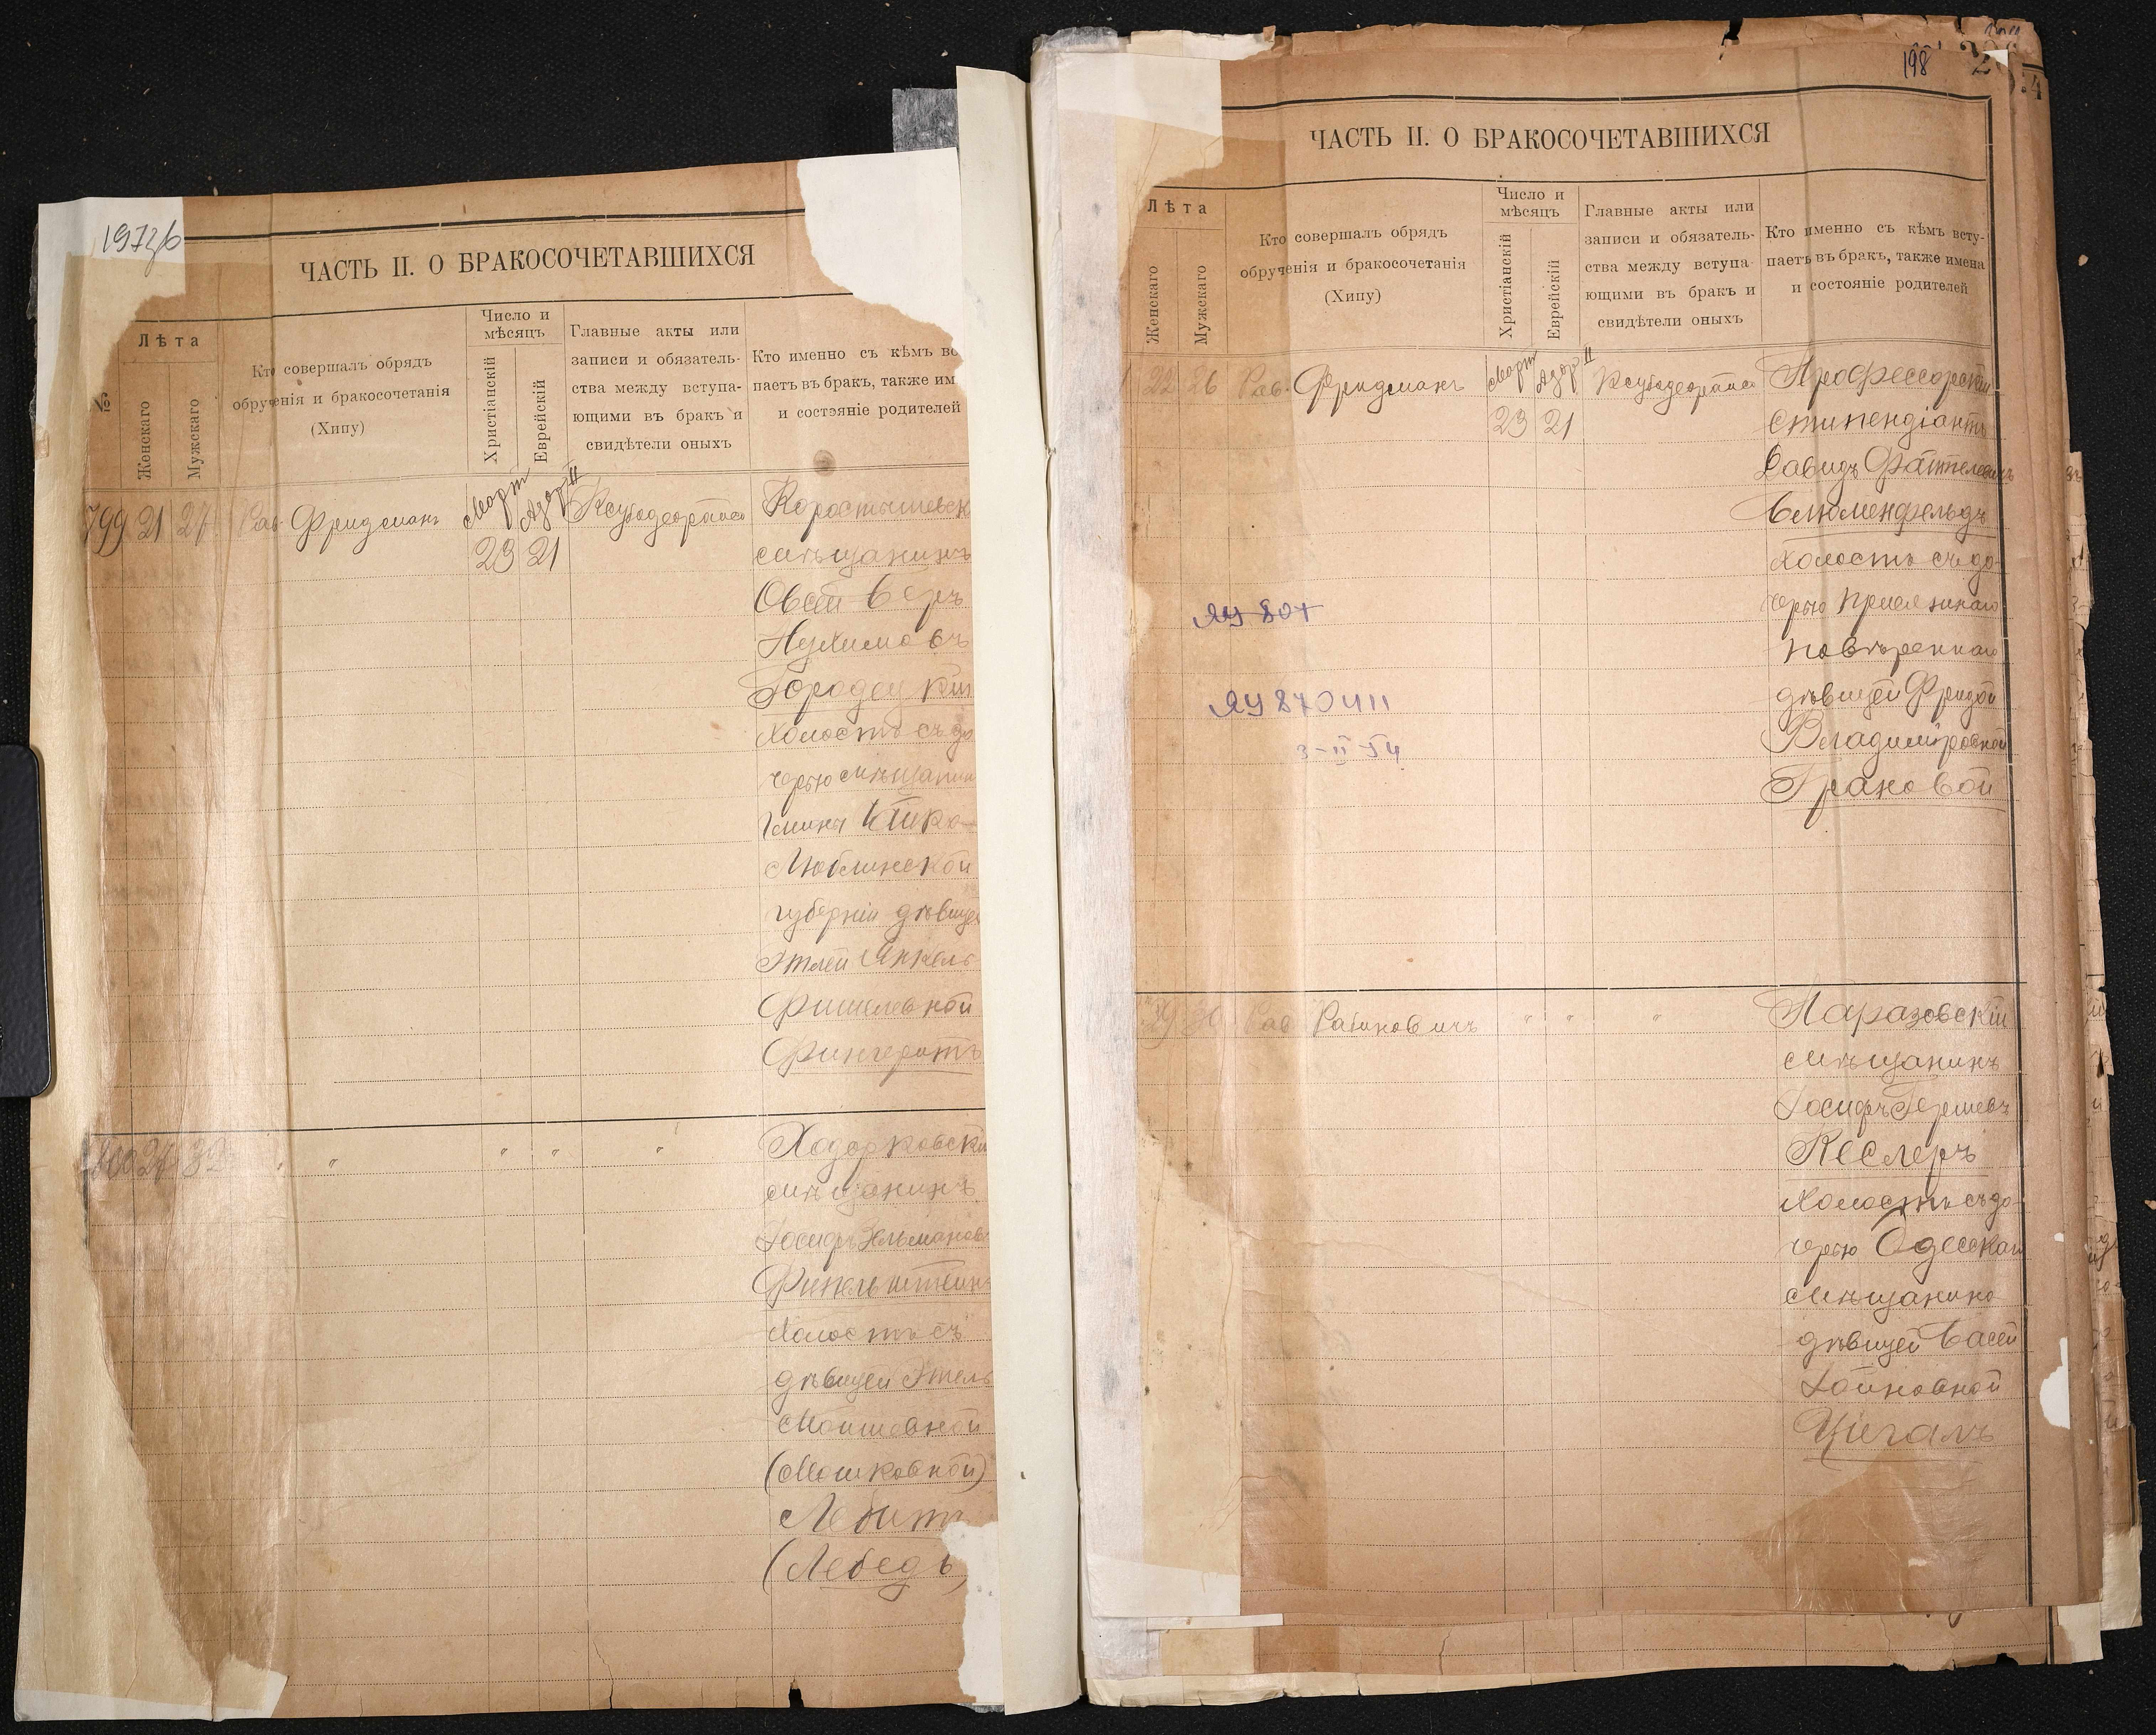 197зб
ЧАСТЬ II. О БРАКОСОЧЕТАВШИХСЯ
№
Лѣта
Женскаго
Мужскаго
Кто совершалъ обрядъ
обрученія и бракосочетанія
(Хипу)
Число и
мѣсяцъ
Христіанскій
Еврейскій
Главные акты или
записи и обязатель-
ства между вступа-
ющими въ бракъ и
свидѣтели оныхъ
Кто именно съ кѣмъ вс
паетъ въ бракъ, также им
и состэяніе родителей
799 21 27 Рав Фридманъ Март 23 Адар II 21
Коростышевск
мѣщанинъ
Овсей Беръ
Нухимовъ
Городец кій
холостъ съ до
черью мѣщанин
гмины
Люблинской
губерніи дѣвице
Этлей Янкель
Фишелевной
Фингерутъ
800 " " " " "
Ходорковскі
мѣщанинъ
Іосифъ Зельманов
Финкельштейнъ
холостъ съ
дѣвицей Этель
Моишевной
(Мошковной)
(Лебедь)
198
ЧАСТЬ II. О БРАКОСОЧЕТАВШИХСЯ
Лѣта
Женскаго
Мужскаго
Кто совершалъ обрядъ
обрученія и бракосочетанія
(Хипу)
Число и
мѣсяцъ
Христіанскій
Еврейскій
Главные акты или
записи и обязатель-
ства между вступа-
ющими въ бракъ и
свидѣтели оныхъ
Кто именно съ кѣмъ всту-
паетъ въ бракъ, также имена
и состояніе родителей
22 26 Рав Фридманъ Март 23 Адар II 21
Профессорскій
стипендіантъ
Давидъ
Блюменфельдъ
холостъ съ до-
черью присяжнаго
повѣреннаго
дѣвицей Фридой
Владиміровной
Грановой
ЯУ 801
ЯУ 870411
3-II-54
Рав Рабиновичъ " " "
Таразовскій
мѣщанинъ
Іосифъ Гершевъ
Кеслеръ
холостъ съ до-
черью Одесскаго
мѣщанина
дѣвицей Басей
Хаимовной
Цигалъ